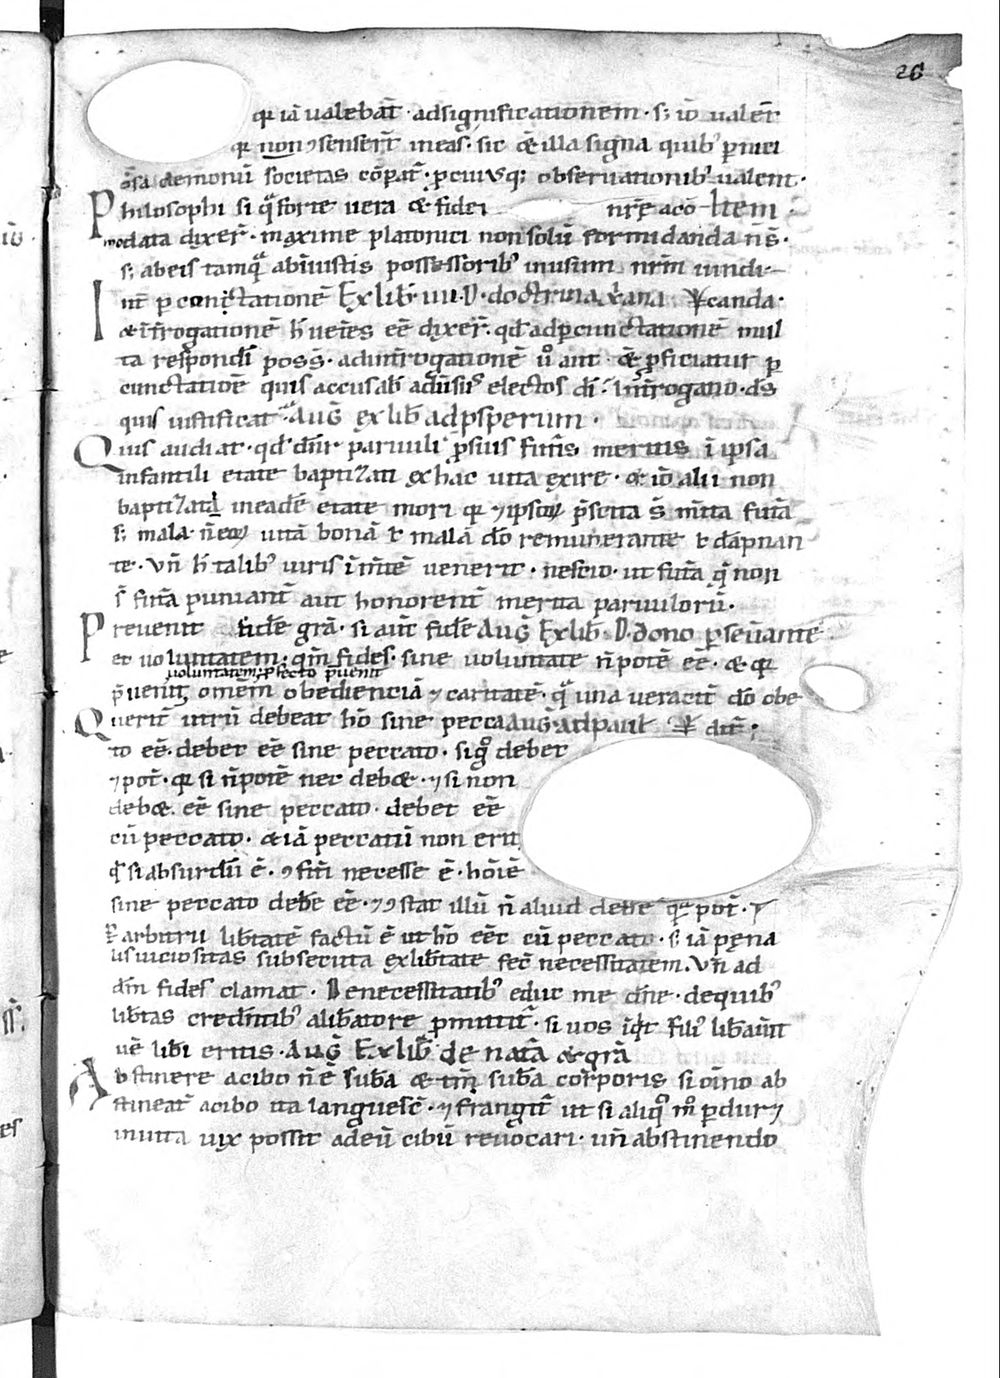 26
qr iā ualebāt̄ · adsignificationem · s; iō ualer̄
qr non ꝯsenser̄t in eas · sic & illa signa quib' ꝑnici
ōsa demonū societas cōꝑat̄ · ꝑ cuiusq; obseruationib' ualent ·
Philosophi si q̄ forte uera & fidei nr̄e acō Item
modata dixer̄ · maxime platonici non solū formidanda n̄ s̄ ·
s; ab eis tamq̄ ab iniustis possessorib' in usum nr̄m uindi
Int̄ ꝑcontatationē Ex lib̄ · iiii · D · doctrina xp̄iana canda ·
& īt̄rogationē h̄ ueteres eē dixer̄ · qd' ad ꝑcunctationē mul
ta respondi poss̄ · ad int̄rogationē ū aut & ꝑficiatur ꝑ
cunctatiōe quis accusab̄ adūsus electos dī · Int̄rogatio · ds
qui iustificat · Aug̃ ex lib̄ ad ꝓsperum ·
Quis audiat · qd' dn̄r paruuli ꝓ suis futuris meritis ī ipsa
infantili etate baptizati ex hac uita exire · & iō alii non
baptizati in eadē etate mori qr ⁊ ipsoꝝ p̄scita s̄ mīta futā
s; mala · n̄ eoꝝ uitā bonā ł malā dō remunerante ł dāpnan
te · Vn̄ h̄ talib' uiris ī mtē uenerit · nescio · ut futā q̄ non
s̄ futā puniant̄ aut honorent̄ merita paruulorū ·
Preuenit fidē grā · si aut̄ fidē Aug̃ Ex lib̄ · D · dono ꝑseūante
et uoluntatem · qm̄ fides · sine uoluntate n̄ potē eē · & qr
uoluntatem ꝓfecto p̄uenit
p̄uenit omēm obedienciā ⁊ caritatē · q̄ una ueracit̄ dō obe
Querit̄ utrū debeat hō sine pecca Aug̃ · ad paul dit̄ ;
to eē · debet eē sine peccato · si q̊ debet
⁊ pot̄ · qr si n̄ potē nec deb& · ⁊ si non
deb& eē sine peccato · debet eē
cū peccato · & iā peccatū non erit
qd' si absurdū ē · ꝯfit̄i necesse ē · hōīē
sine peccato debe eē · ⁊ ꝯstat illū n̄ aliud debe qm̄ pot̄ ·
arbitrii lib̄tatē factū ē ut hō eēt cū peccato · s; iā pęna
lis uiciositas subsecuta ex lib̄tate fec̄ necessitatem · Vn̄ ad
dm̄ fides clamat · De necessitatib' educ me dn̄e · de quib'
lib̄tas credentib' a lib̄atore ꝓmittit̄ · si uos īqt fili' lib̄aūit
uē libi eritis · Aug̃ Ex lib̄ de natā & grā
Abstinere a cibo n̄ ē sub̄a & tm̄ sub̄a corporis si om̄īno ab
stineat̄ a cibo ita languesc̄ · ⁊ frangit̄ ut si aliq̊ m̊ ꝑduret
in uita uix possit ad eū cibū reuocari · un̄ abstinendo